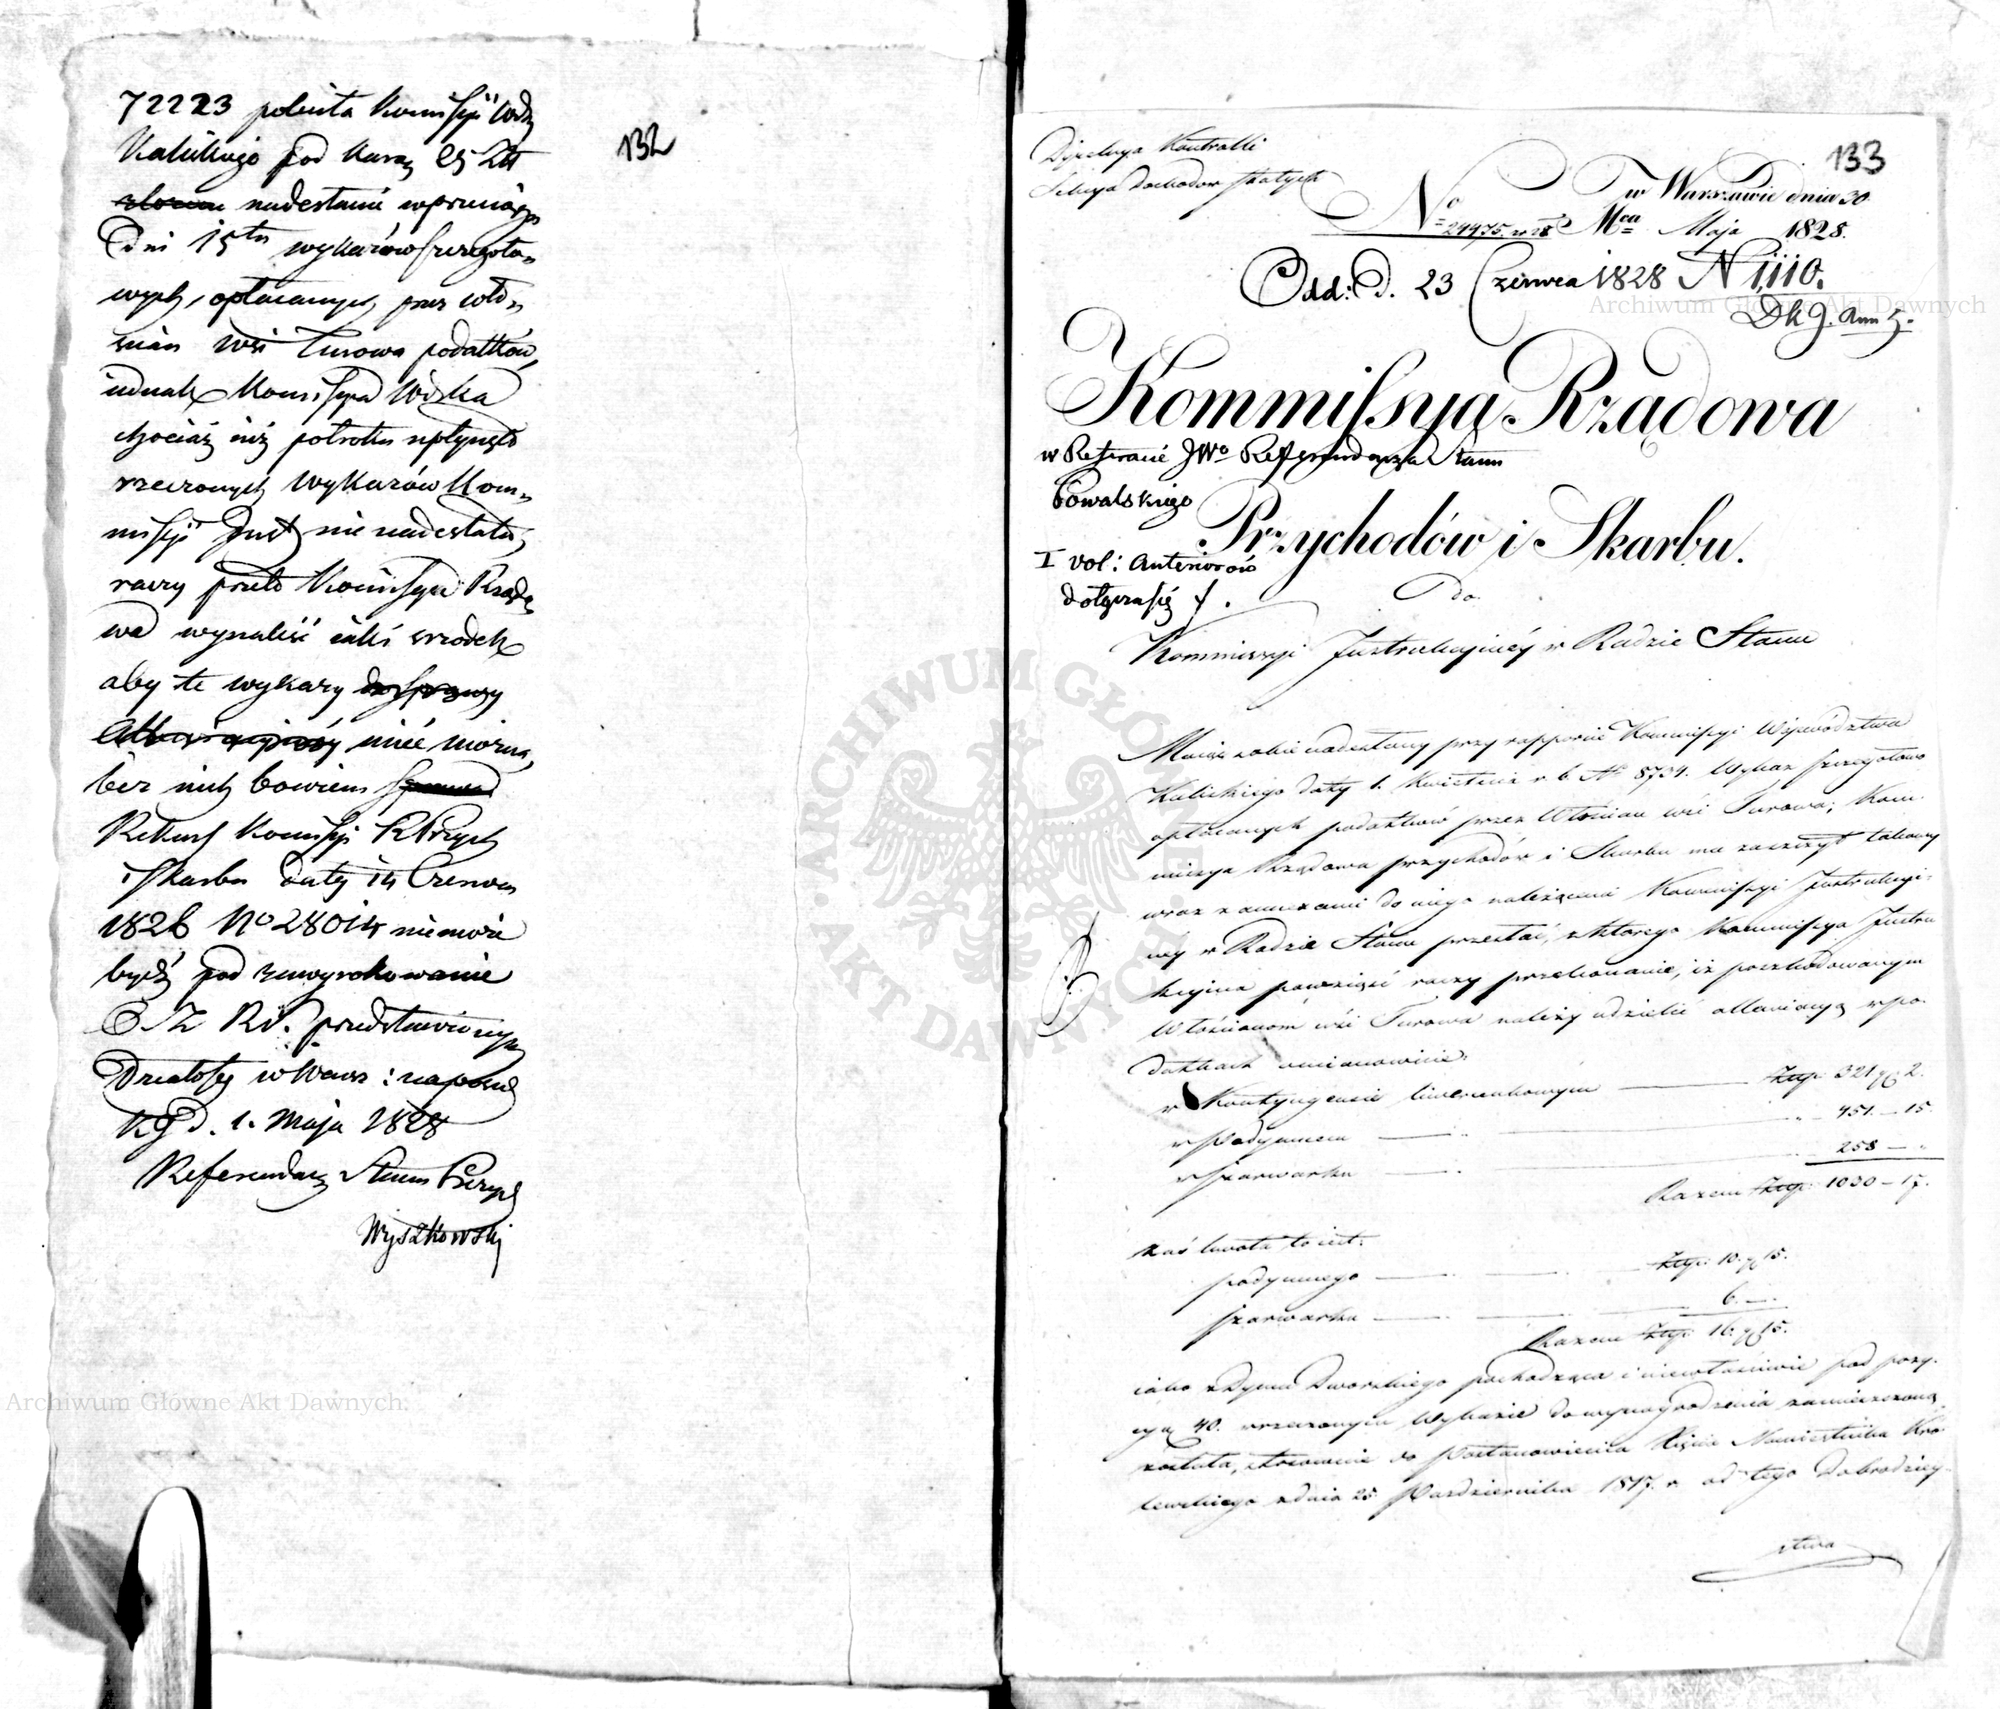 132
72223 poleciła Kommissyi Wdzt
Kaliskiego pod karą 25 Złt
nadesłanie wprzeciągu
Dni 15tu wykazów szczegóło-
wych, opłacanych przez wło-
ścian wsi Turowa podatków,
iednak Kommissya Wdzka
chociaż iuż półroku upłynęło
rzeczonych Wykazów Kom-
missyi Instr nie nadesłała;
raczy przeto Kommissya Rządo-
wa wynaleść iakiś srzodek
aby te wykazy mieć można,
bez nich bowiem
Rekurs Kommissyi R Przych
i Skarbu daty 14 Czerwca
1826 No 28014 nie może
bydź pod zawyrokowanie
przedstawionym
Działo się w Warsz: na posie
d. 1. Maja 1828
Referendarz Stanu
Wyszkowski
133
Dyrekcya Kontrolli
Sekcya Dochodów stałych
w Warszawie dnia 30
No 24475. Mca Maja 1828.
Odd: D. 23 Czerwca 1828 N 1,110.
Kommissya Rządowa
w Referacie JWo Referendarza Stanu
Kowalskiego
Przychodów i Skarbu.
I vol: Anteriorów
dołącza się
do
Kommissyi Instrukcyinéy w Radzie Stanu
Maiąc sobie nadesłany przy rapporcie Kommissyi Woiewództwa
Kaliskiego daty 1. Kwietnia r. b. No 8734. Wykaz szczegółowo
opłacanych podatków przez Włościan wsi Turowa; Kom-
missya Rządowa przychodów i Skarbu ma zaszczyt takowy
wraz z annexami do niego należącemi Kommissyi Instrukcyi-
néy w Radzie Stanu przesłać, z którego Kommissya Instru
kcyina powziąść raczy przekonanie, iż poszkodowanym
Włościanom wsi Turowa należy udzielić allewiacyą w po-
datkach a mianowicie:
w Kontyngensie liwerunkowym Złp. 321 gr 2.
w Podymnem 451. — 15.
w Szarwarku 258 — „
Razem Złp. 1030 — 17.
zaś kwota to iest:
podymnego Złp. 10. gr 15.
szarwarku 6. —.
Razem Złp. 16. gr 15.
iako z Dymu Dworskiego pochodząca i niewłaściwie pod pozy-
cyą 40. w rzeczonym Wykazie do wynagrodzenia zamieszczoną
została, stosownie do Postanowienia Xięcia Namiestnika Kró-
lewskiego z dnia 25 Października 1817. r. od tego Dobrodziey-
stwa
ARCHIWUM GŁÓWNE AKT DAWNYCH
Archiwum Główne Akt Dawnych
Archiwum Główne Akt Dawnych